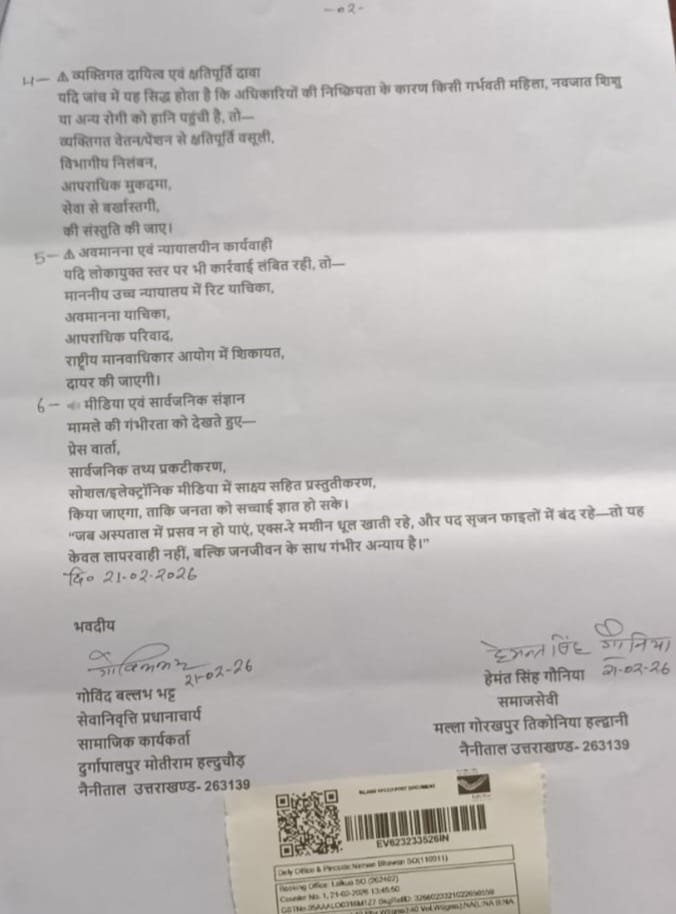 -02-
4- ⚠ व्यक्तिगत दायित्व एवं क्षतिपूर्ति दावा
यदि जांच में यह सिद्ध होता है कि अधिकारियों की निष्क्रियता के कारण किसी गर्भवती महिला, नवजात शिशु
या अन्य रोगी को हानि पहुंची है, तो—
व्यक्तिगत वेतन/पेंशन से क्षतिपूर्ति वसूली,
विभागीय निलंबन,
आपराधिक मुकदमा,
सेवा से बर्खास्तगी,
की संस्तुति की जाए।
5- ⚠ अवमानना एवं न्यायालयीन कार्यवाही
यदि लोकायुक्त स्तर पर भी कार्रवाई लंबित रही, तो—
माननीय उच्च न्यायालय में रिट याचिका,
अवमानना याचिका,
आपराधिक परिवाद,
राष्ट्रीय मानवाधिकार आयोग में शिकायत,
दायर की जाएगी।
6- मीडिया एवं सार्वजनिक संज्ञान
मामले की गंभीरता को देखते हुए—
प्रेस वार्ता,
सार्वजनिक तथ्य प्रकटीकरण,
सोशल/इलेक्ट्रॉनिक मीडिया में साक्ष्य सहित प्रस्तुतीकरण,
किया जाएगा, ताकि जनता को सच्चाई ज्ञात हो सके।
“जब अस्पताल में प्रसव न हो पाएं, एक्स-रे मशीन धूल खाती रहे, और पद सृजन फाइलों में बंद रहे—तो यह
केवल लापरवाही नहीं, बल्कि जनजीवन के साथ गंभीर अन्याय है।”
दि० 21-02-2026
भवदीय
21-02-26
गोविंद बल्लभ भट्ट
सेवानिवृत्ति प्रधानाचार्य
सामाजिक कार्यकर्ता
दुर्गापालपुर मोतीराम हल्दुचौड़
नैनीताल उत्तराखण्ड- 263139
हेमन्त सिंह गौनिया
हेमंत सिंह गौनिया 21-02-26
समाजसेवी
मल्ला गोरखपुर तिकोनिया हल्द्वानी
नैनीताल उत्तराखण्ड- 263139
EV623233526IN
Dely Office & Pincode:Nirman Bhawan SO(110011)
Booking Office: Lalkua SO (262402)
Counter No. 1, 21-02-2026 13:45:50